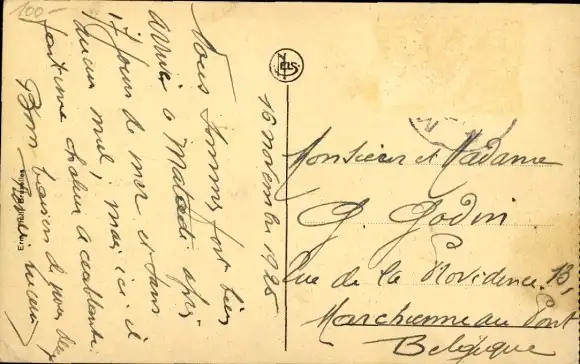 100-
16 novembre 1925
Nous sommes fort bien
arrivés à Matadi après
17 jours de mer et sans
aucun mal, mais ici il
fait une chaleur accablante.
Bons baisers de vous deux
ELS
Monsieur et Madame
G. Godin
Rue de la Providence. 13,
Marchienne au Pont
Belgique